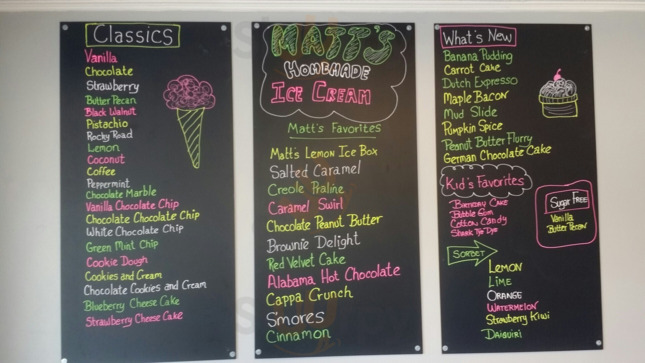 Classics
Vanilla
Chocolate
Strawberry
Butter Pecan
Black Walnut
Pistachio
Rocky Road
Lemon
Coconut
Coffee
Peppermint
Chocolate Marble
Vanilla Chocolate Chip
Chocolate Chocolate Chip
White Chocolate Chip
Green Mint Chip
Cookie Dough
Cookies and Cream
Chocolate Cookies and Cream
Blueberry Cheese Cake
Strawberry Cheese Cake
MATT'S
HOMEMADE
ICE CREAM
Matt's Favorites
Matt's Lemon Ice Box
Salted Caramel
Creole Praline
Caramel Swirl
Chocolate Peanut Butter
Brownie Delight
Red Velvet Cake
Alabama Hot Chocolate
Cappa Crunch
S'mores
Cinnamon
What's New
Banana Pudding
Carrot Cake
Dutch Espresso
Maple Bacon
Mud Slide
Pumpkin Spice
Peanut Butter Flurry
German Chocolate Cake
Kid's Favorites
Birthday Cake
Bubble Gum
Cotton Candy
Shark Tie Dye
Sugar Free
Vanilla
Butter Pecan
SORBET
LEMON
LIME
ORANGE
WATERMELON
Strawberry Kiwi
DAIQUIRI